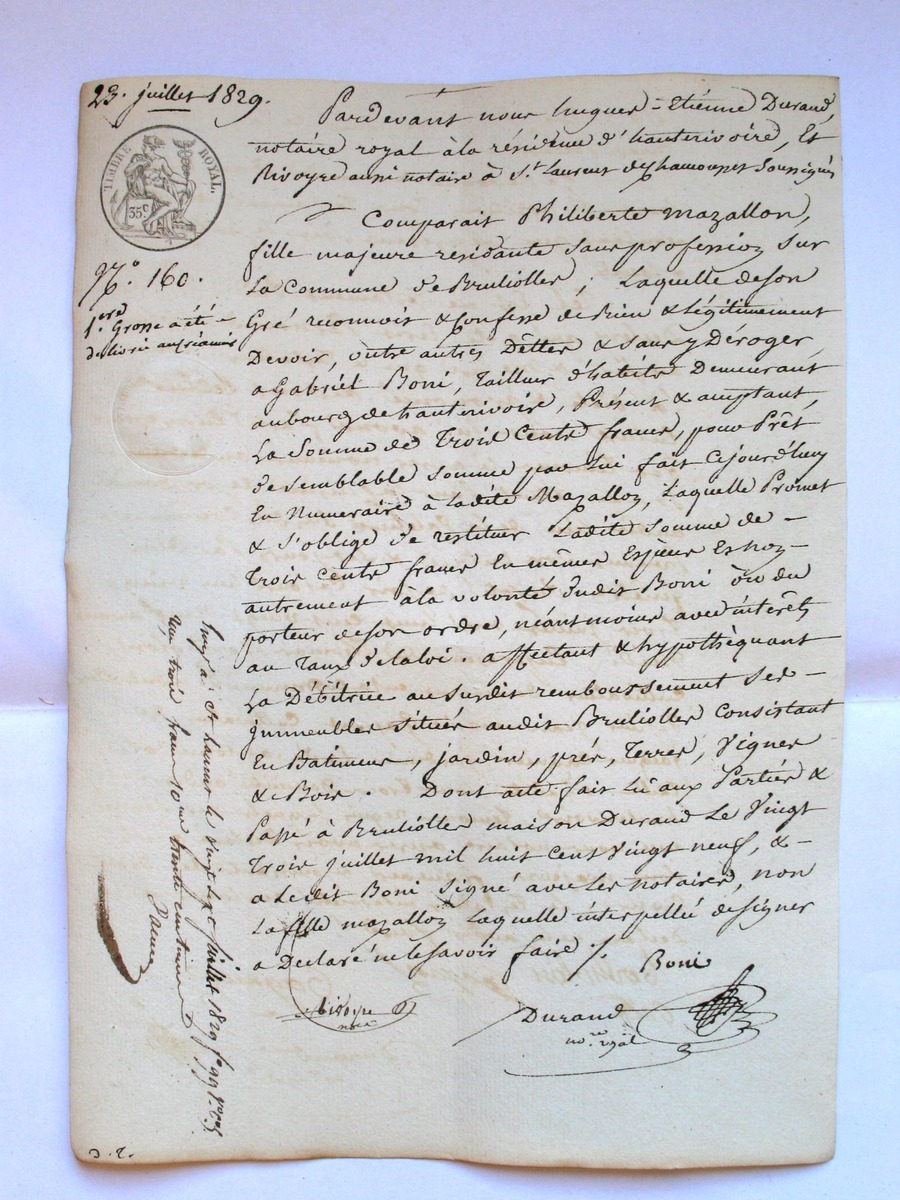 23. juillet 1829.
TIMBRE ROYAL.
35c
N.° 160.
1.ere Grosse a été
délivrée au créancier
Pardevant nous hugues-Etienne Durand,
notaire royal à la résidence d'hauterivoire, Et
Rivoyre aussi notaire à St. Laurent de Chamousset Soussignés
Comparait Philiberte Mazallon,
fille majeure résidante sans profession sur
La Commune de Brulioller ; Laquelle de son
Gré reconnoit & Confesse de Bien & Légitimement
Devoir, outre autres Dettes & sans y Déroger,
a Gabriël Boni, Tailleur d'habits Demeurant
au bourg de hauterivoire, Présent & acceptant,
La Somme de Trois Cents francs, pour Prêt
de semblable somme par Lui fait Cejourd'huy
En Numeraire à Ladite Mazallon, Laquelle Promet
& s'oblige de restituer Ladite Somme de -
Trois Cents francs En mêmes Espèces Es non -
autrement à la volonté dudit Boni ou du
porteur de son ordre, néantmoins avec intérêts
au Taux de la loi. affectant & hypothéquant
La Débitrice au susdit remboursement Ses -
immeubles situés audit Brulioller Consistant
En Batimens, jardin, prés, Terres, Vignes
& Bois. Dont acte fait Lû aux Parties &
Passé à Brulioller maison Durand Le Vingt
Trois juillet mil huit Cent Vingt neuf, & -
a Ledit Boni Signé avec Les notaires, non
La fille mazallon Laquelle interpellée de signer
a Déclaré ne le savoir faire ./.
Boni
Rivoyre
nore
Durand
no.re royal
juillet 1829
trois francs trente centimes